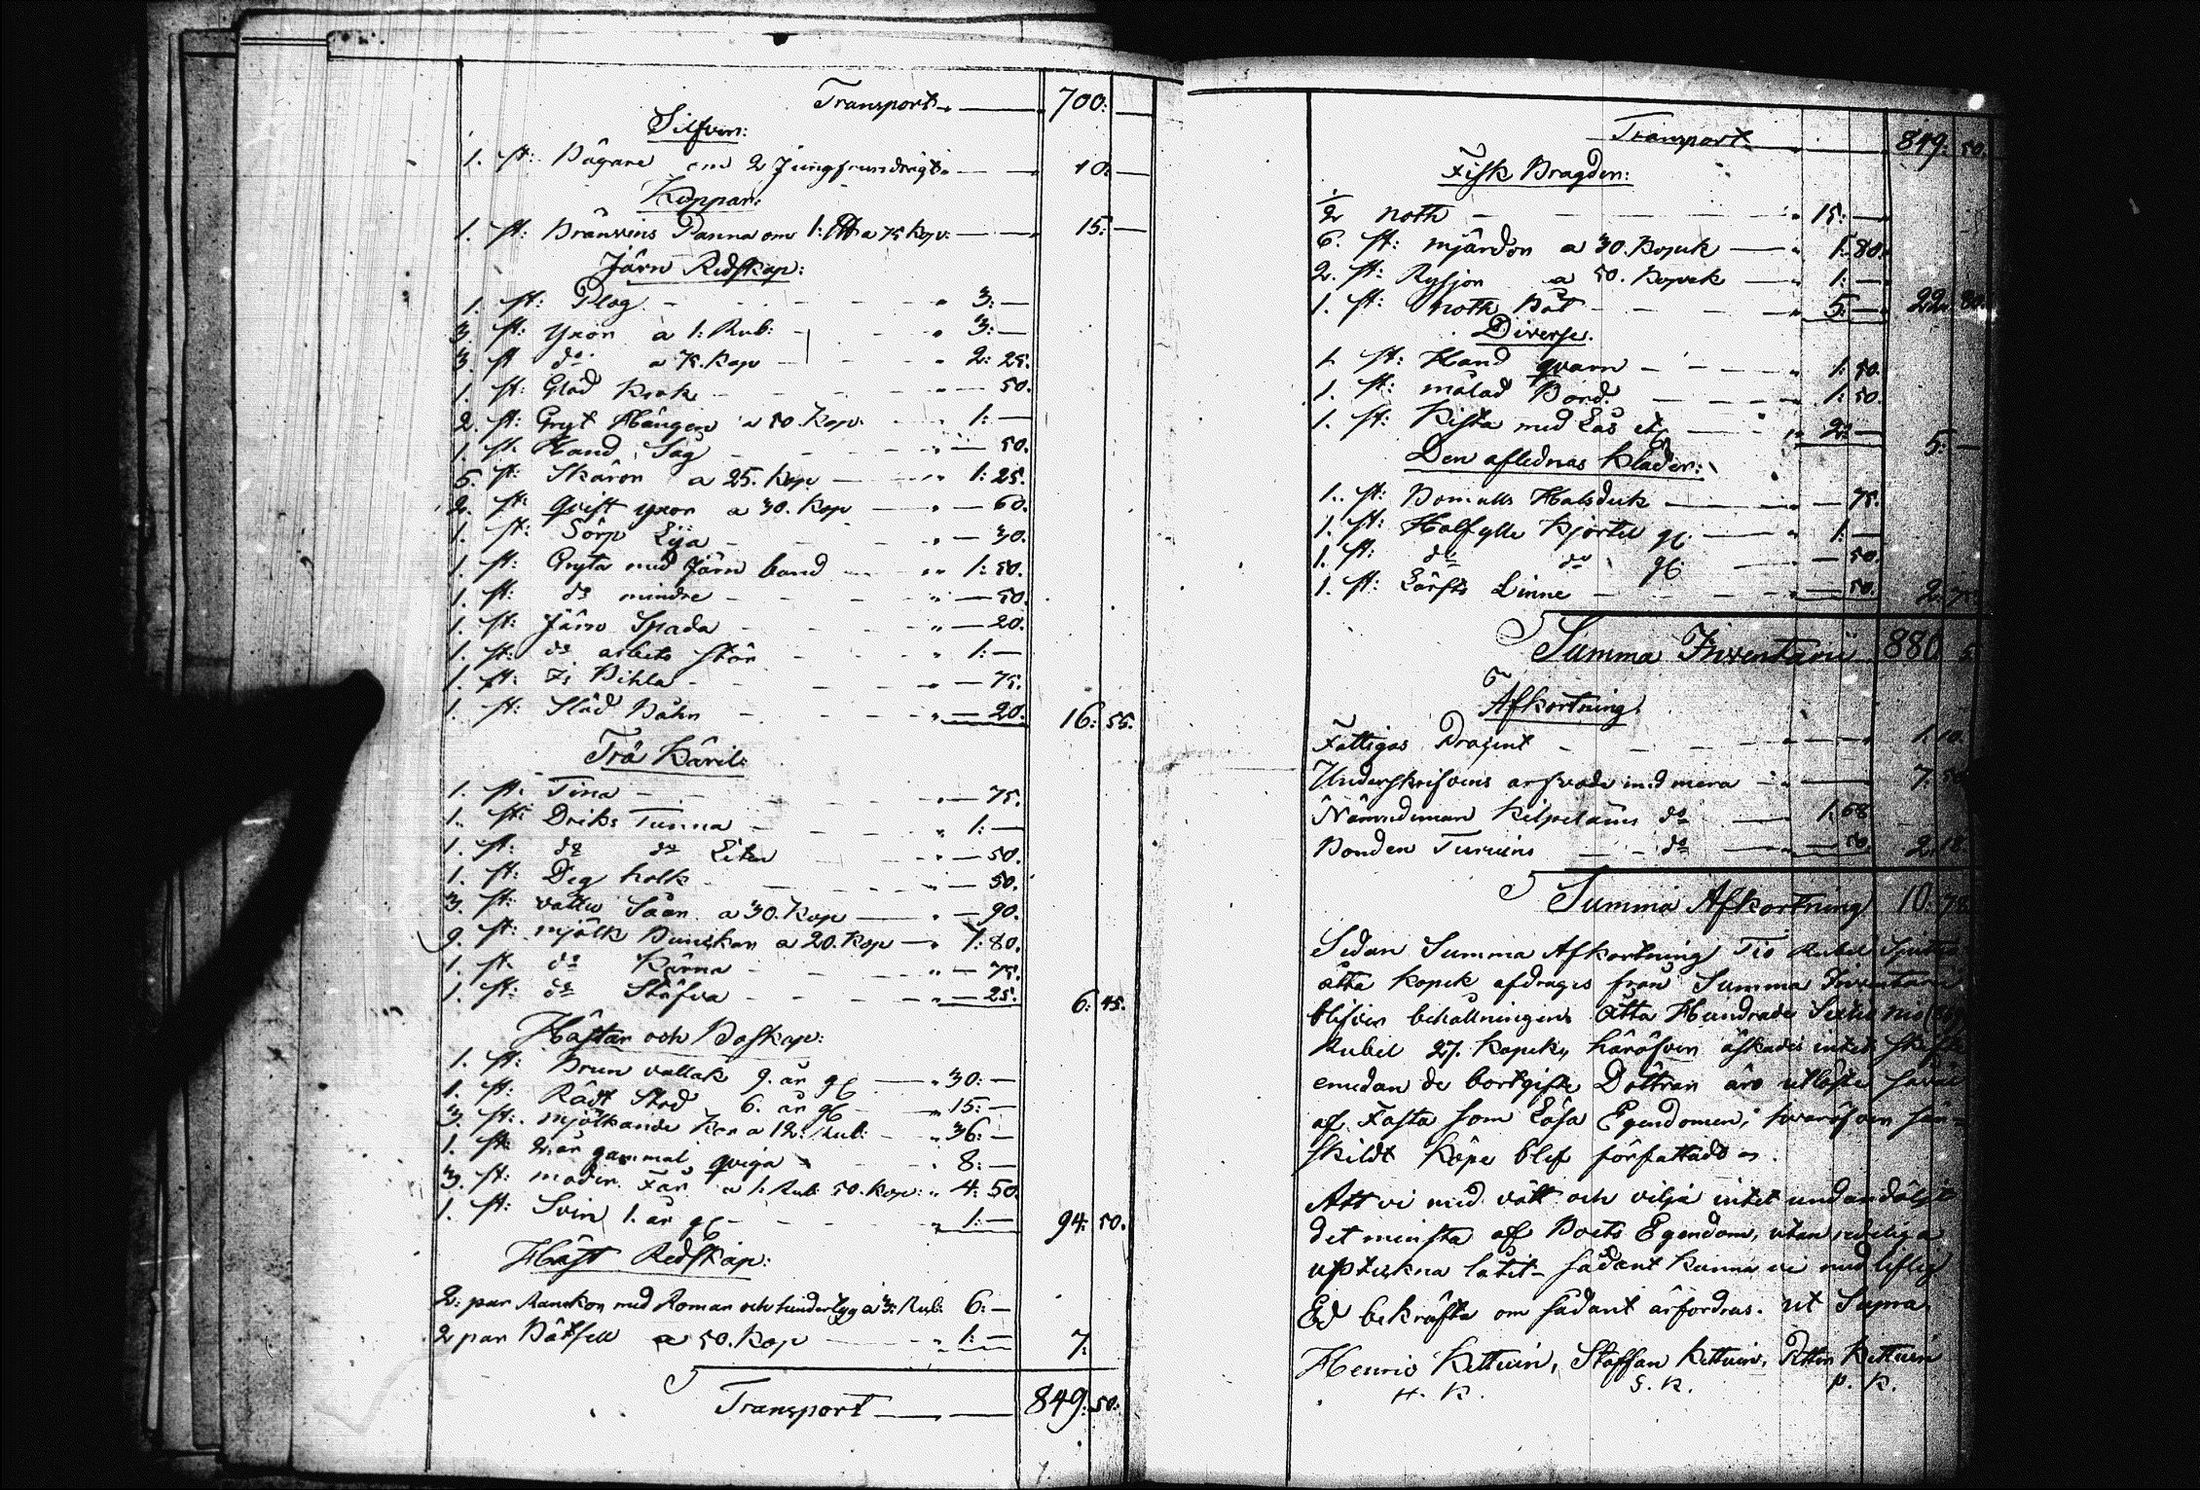 Transport 700:
Silfver:
1. st: Bägare om 2 Jungfrurs drägt 10:
Koppar:
1. st: Bränvins Panna om 1: a 75 Kop: 15:
Järn Redskap:
1. st: Plog 3:
3. st: Yxor a 1: Rub: 3:
3. st do a 75. Kop 2: 25.
1. st: Glöd Krok 50.
2. st: Gryt Hängen a 50. Kop: 1:
1. st. Hand Såg 50.
5. st: Skäror a 25. Kop 1: 25.
2. st: qvist yxor a 30. Kop 60.
1. st: Sörp Lija 30.
1. st: Gryta med Järn band 1: 50.
1. st: do mindre 50.
1. st: Järn Spada 20.
1. st: do arbets stör 1:
1. st: Is Bihla 75.
1. st: Slåd Bahn 20. 16: 55.
Trä Käril:
1. st: Tina 75.
1. st: Driks Tunna 1:
1. st: do do Liten 50.
1. st: Deg holk 50.
3. st: vattu Såar a 30. Kop 90.
9. st: mjölk Bunckar a 20. Kop 1: 80.
1. st. do Kärna 75.
1. st: do Stäfva 25. 6: 45.
Hästar och Boskap:
1. st: Brun vallak 9. år gl 30:
1. st: Rådt Stod 6. år gl 15:
3. st: mjölkande Kor a 12: Rub: 36:
1. st: 2. år gammal qviga 8:
3. st: moder Får a 1: Rub: 50. Kop: 4: 50.
1. st: Svin 1. år gl 1: 94: 50.
Häst Redskap:
2: par Ranckor med Roman och tindertyg a 3: Rub: 6:
2 par Båtsell a 50. Kop 1: 7.
Transport 849: 50.
Transport 849: 50.
Fisk Bragder:
1/2 noth 15:
6. st: mjärdor a 30. Kopek 1: 80.
2. st: Rysjor a 50. Kopek 1:
1. st: noth Båt 5: 22: 80.
Diverse.
1. st: Hand qvarn 1: 50.
1. st: målad Bord. 1: 50.
1. st: Kista med Lås etc 2: 5:
Den aflednas Kläder:
1. st: Bomulls Halsduk 75.
1. st: Halfylle Kjortel gl. 1:
1. st: do do gl: 50.
1. st: Lärfts Linne 50. 2: 75
Summa Inventarii 880
Afkortning
Fattigas Procent 1: 10.
Underskrifvens arfvode med mera 7: 50
Nämndeman Kilpeläins do 1: 68
Bonden Turuins do 50. 2: 18
Summa Afkortning 10: 78
Sedan Summa Afkortning Tio Rubel Sjutio
åtta Kopek afdrages från Summa Inventarii
blifver behållningen Åtta Hundrade Sextio nio
Rubel 27. Kopek, häröfver äskades intet Skifte
emedan de bortgifte Döttrar äro utlöste såväl
af Fasta som Lösa Egendomen, hvaröfver sär-
skildt Köpe blef författadt.
Att vi med vätt och vilja intet undandöljt
det minsta af Boets Egendom, utan redeliga
upteckna låtit sådant kunna vi med liflig
Ed bekräfta om sådant ärfordras. Ut Supra.
Henric Kettuin, Staffan Kettuin, Petter Kettuin
H. K. S. K. P. K.